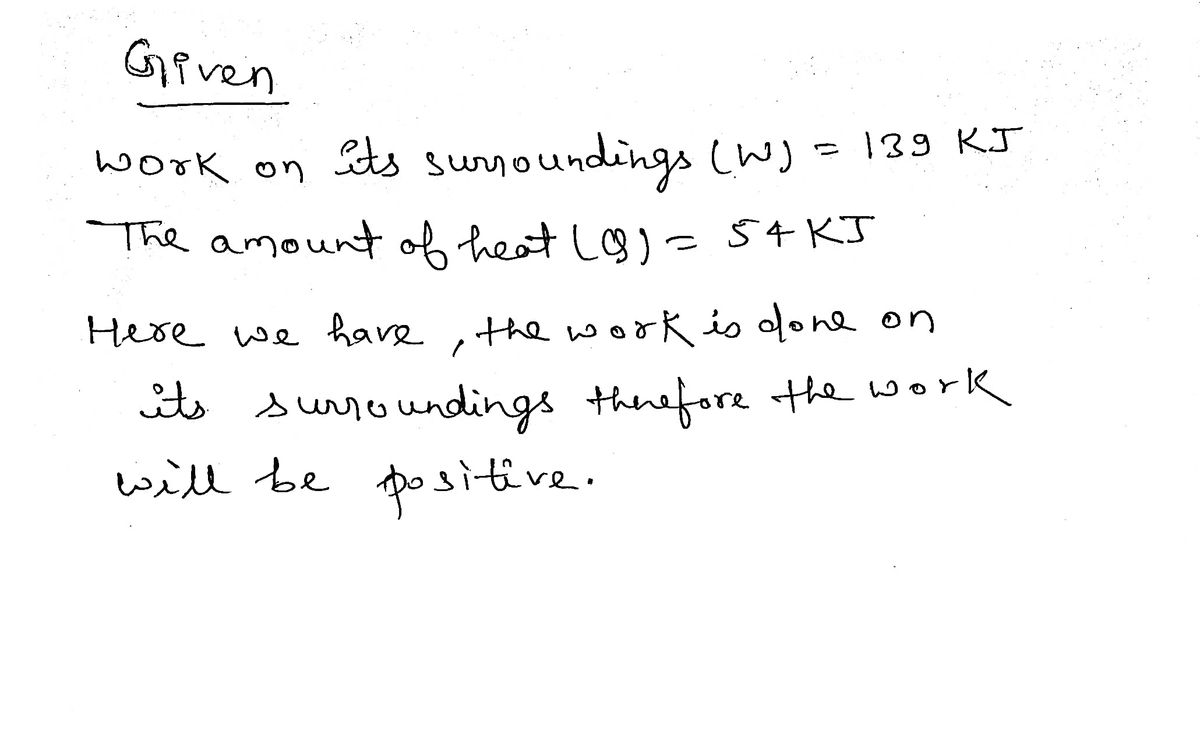 Given
Work on its surroundings (W) = 139 KJ
The amount of heat (Q) = 54 KJ
Here we have, the work is done on
its surroundings therefore the work
will be positive.